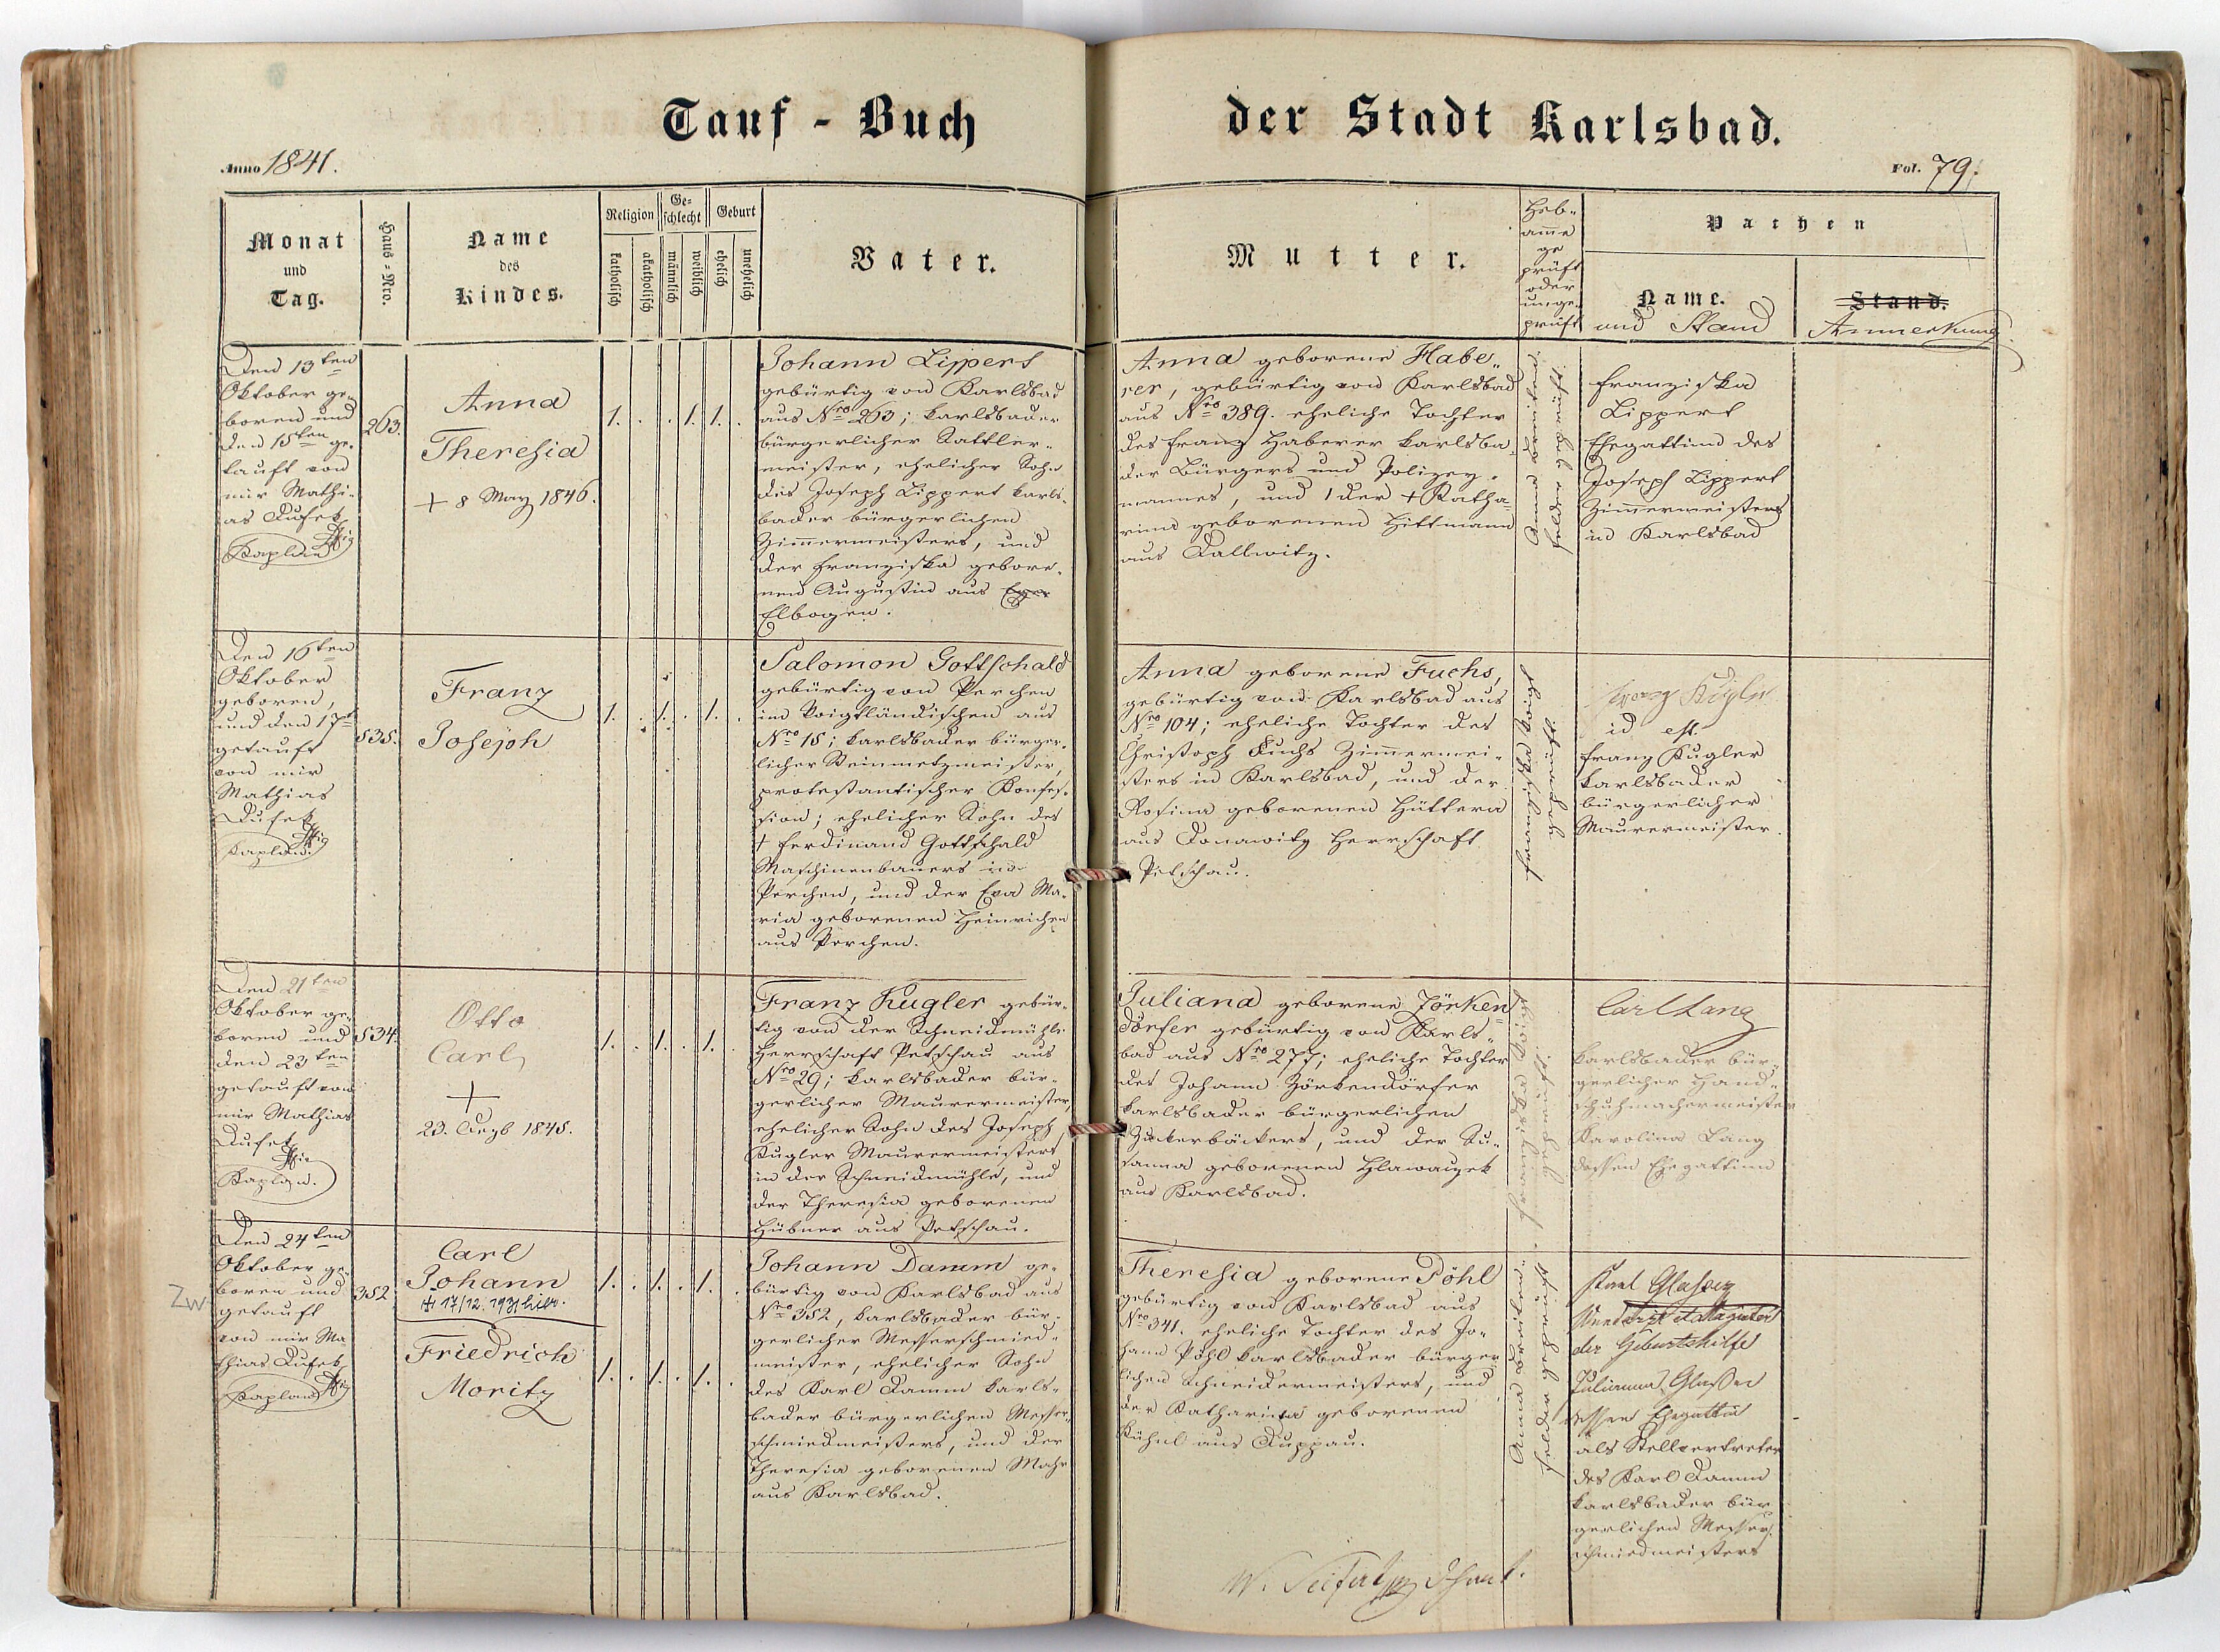 Tauf - Buch
der Stadt Karlsbad.
Anno 1841.
Fol. 79.
Monat
und
Tag.
Haus-Nro.
Name
des
Kindes.
Religion
katholisch
akatholisch
Ge-
schlecht
männlich
weiblich
Geburt
ehelich
unehelich
Vater.
Mutter.
Heb-
amme
ge
prüft
oder
unge-
prüft
Pathen
Name.
und Stand
Stand.
Anmerkung.
Den 13ten
Oktober ge-
boren und
den 15ten ge-
tauft von
mir Mathi-
as Dusek
Kaplan
263.
Anna
Theresia
+ 8 May 1846.
1. . . 1. 1. .
Johann Lippert
gebürtig von Karlsbad
aus Nro 263; karlsbader
bürgerlicher Sattler-
meister, ehelicher Sohn
des Joseph Lippert karls-
bader bürgerlichen
Zimmermeisters, und
der Franziska gebore-
nen Augustin aus Eger
Elbogen.
Anna geborene Habe-
rer, gebürtig von Karlsbad
aus Nro 389. eheliche Tochter
des Franz Haberer karlsba-
der Bürgers und Polizey-
mannes, und der + Katha-
rina geborenen Hittmann
aus Dallwitz.
Anna Breiten-
felder geprüft.
Franziska
Lippert
Ehegattinn des
Joseph Lippert
Zimmermeisters
in Karlsbad
Den 16ten
Oktober
geboren,
und den 17t
getauft
von mir
Mathias
Dusek
Kaplan.
535.
Franz
Joseph
1. . 1. . 1. .
Salomon Gottschald
gebürtig von Perchen
im Voigtländischen aus
Nro 15; karlsbader bürger-
licher Steinmetzmeister,
protestantischer Konfes-
sion; ehelicher Sohn des
+ Ferdinand Gottschald
Maschinenbauers in
Perchen, und der Eva Ma-
ria geborenen Heinrichen
aus Perchen.
Anna geborene Fuchs,
gebürtig von Karlsbad aus
Nro 104; eheliche Tochter des
Christoph Fuchs Zimmermei-
sters in Karlsbad, und der
Rosina geborenen Hüttera
aus Donawitz Herrschaft
Petschau.
Franziska Voigt
geprüft.
id est.
Franz Kugler
karlsbader
bürgerlicher
Maurermeister.
Den 21ten
Oktober ge-
boren und
den 23ten
getauft von
mir Mathias
Dusek
Kaplan.
534.
Otto
Carl
+
23. 1845.
1. . 1. . 1. .
Franz Kugler gebür-
tig von der Schneidmühle
Herrschaft Petschau aus
Nro 29; karlsbader bür-
gerlicher Maurermeister,
ehelicher Sohn des Joseph
Kugler Maurermeisters
in der Schneidmühle, und
der Theresia geborenen
Hübner aus Petschau.
Juliana geborene Zörken-
dörfer gebürtig von Karls-
bad aus Nro 277; eheliche Tochter
des Johann Zörkendörfer
karlsbader bürgerlichen
Zuckerbäckers, und der Su-
sanna geborenen Hlawaczek
aus Karlsbad.
Franziska Voigt
geprüft.
Carl Lang
karlsbader bür-
gerlicher Hand-
schuhmachermeister
Karolina Lang
dessen Ehegattinn
Den 24ten
Oktober ge-
boren und
getauft
von mir Ma-
thias Dusek
Kaplan
Zw
352
Carl
Johann
+ 17/12. 1931 hier.
Friedrich
Moritz
1. . 1. . 1. .
1. . 1. . 1. .
Johann Damm ge-
bürtig von Karlsbad aus
Nro 352, karlsbader bür-
gerlicher Messerschmied-
meister, ehelicher Sohn
des Karl Damm karls-
bader bürgerlichen Messer-
schmiedmeisters, und der
Theresia geborenen Mahr
aus Karlsbad.
Theresia geborene Pöhl
gebürtig von Karlsbad aus
Nro 341. eheliche Tochter des Jo-
hann Pöhl karlsbader bürger
lichen Schneidermeisters, und
der Katharina geborenen
Kühnl aus Duppau.
Anna Breiten-
felder geprüft
Karl Glasser
Wundarzt et Magister
der Geburtshilfe
Julianna Glasser
dessen Ehegattin
als Stellvertreter
des Karl Damm
karlsbader bür
gerlichen Messer-
schmiedmeisters